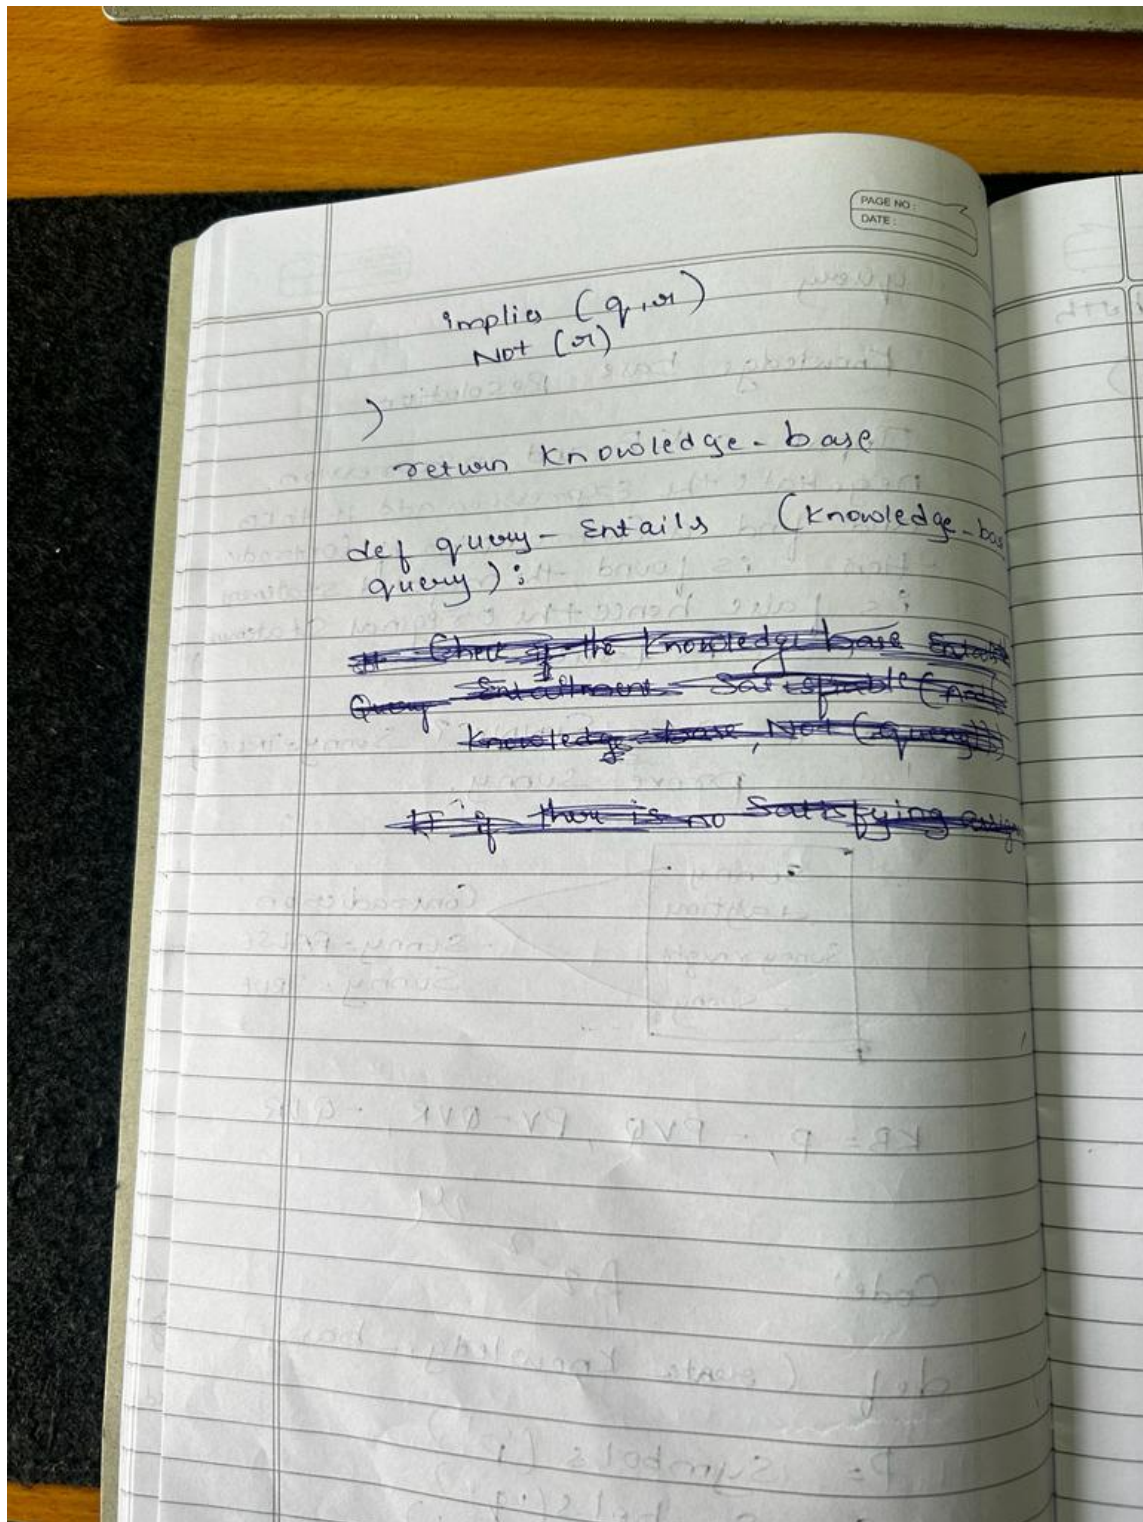 PAGE NO :
DATE :
implies (q, r)
Not (r)
)
return Knowledge - base
def query - Entails (Knowledge - bas
query ) :
# Check if the Knowledge base Entails
Query Entailment Satisfiable (And
Knowledge base, Not (query))
If if there is no Satisfying assign